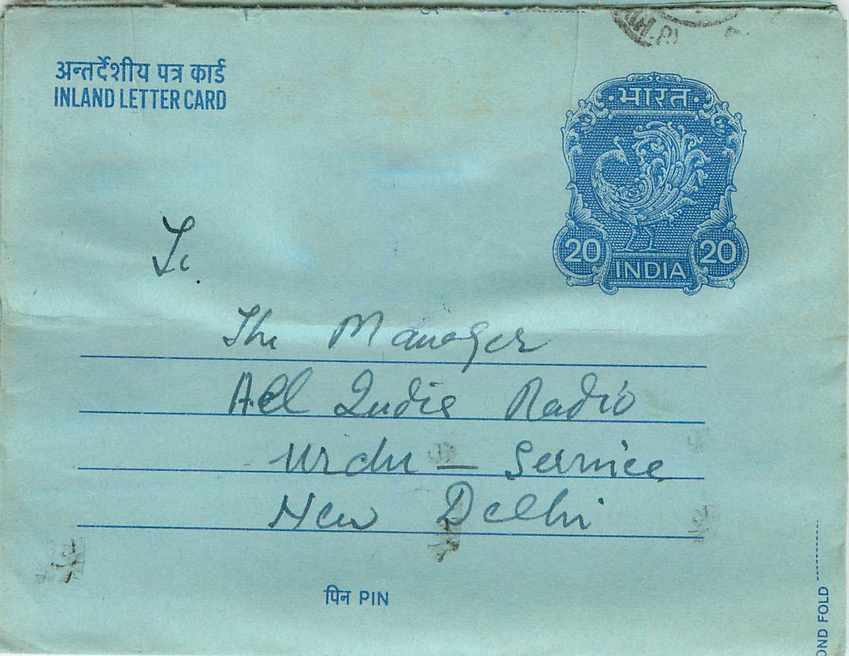 अन्तर्देशीय पत्र कार्ड
INLAND LETTER CARD
भारत
20 20
INDIA
To
The Manager
All India Radio
Urdu – Service
New Delhi
पिन PIN
OND FOLD